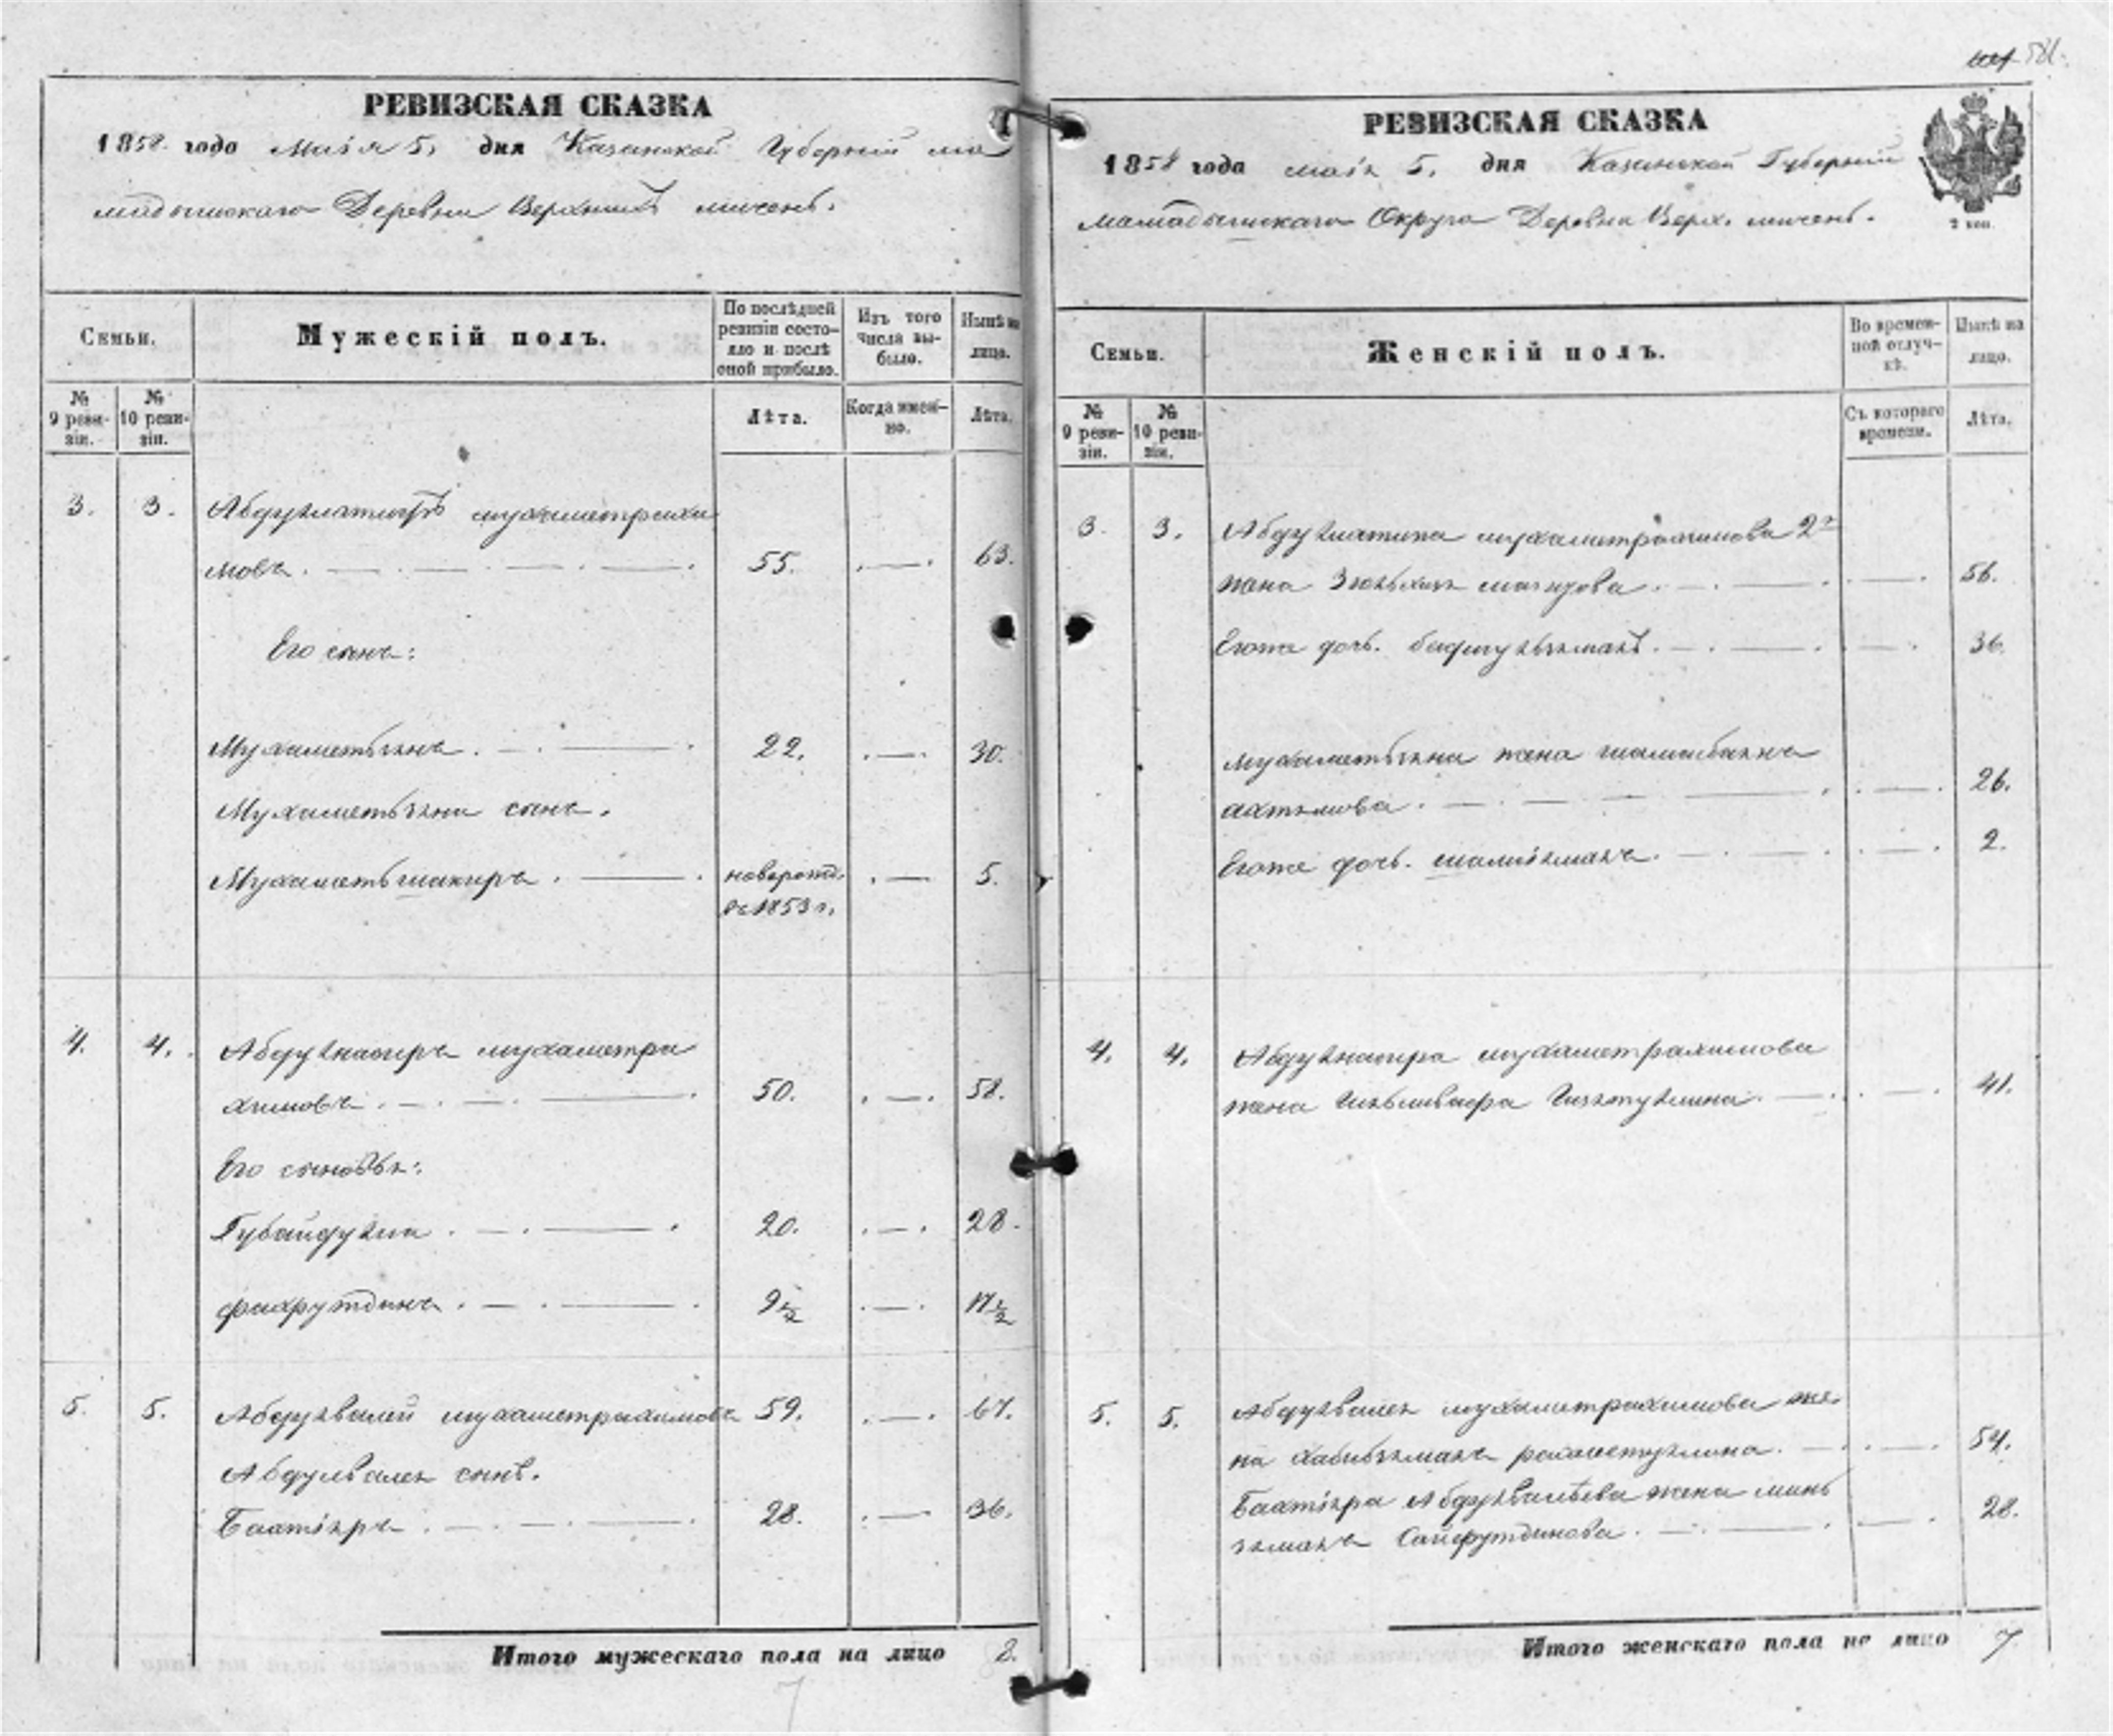 РЕВИЗСКАЯ СКАЗКА
1858 года маія 5. дня Казанской Губерніи ма
мадышскаго Деревни Верхнихъ
Семьи.
Мужескій полъ.
По послѣдней ревизіи состо-
яло и послѣ оной прибыло.
Изъ того числа вы-
было.
Нынѣ на лицо.
№ 9 реви-
зіи.
№ 10 реви-
зіи.
Лѣта.
Когда имен-
но.
Лѣта.
3. 3. Абдуллатифъ мухаметрахи
мовъ. 55. 63.
Его сынъ:
22. 30.
сынъ.
Мухаметьшакиръ. новорожд. 5.
въ 1853 г.
4. 4. Абдулнасыръ мухаметра
химовъ. 50. 58.
Его сыновья:
Губайдулла. 20. 28.
фахрутдинъ. 9½ 17½
5. 5. Абдулвалей мухаметрахимовъ 59. 67.
Абдулвалея сынъ.
Бахтіяръ. 28. 36.
Итого мужескаго пола на лицо 8.
7
РЕВИЗСКАЯ СКАЗКА
1858 года маія 5. дня Казанской Губерніи
мамадышскаго Округа Деревни Верх.
2 коп.
Семьи.
Женскій полъ.
Во времен-
ной отлуч-
кѣ.
Нынѣ на лицо.
№ 9 реви-
зіи.
№ 10 реви-
зіи.
Съ котораго времени.
Лѣта.
3. 3. Абдуллатифа мухаметрахимова 2я
жена 56.
Егоже дочь. 36.
жена
26.
Егоже дочь. 2.
4. 4. Абдулнасыра мухаметрахимова
жена 41.
5. 5. Абдулвалея мухаметрахимова же-
на рахметуллина. 54.
Бахтіяра Абдулвалѣева жена минь
Сайфутдинова. 28.
Итого женскаго пола на лицо 7